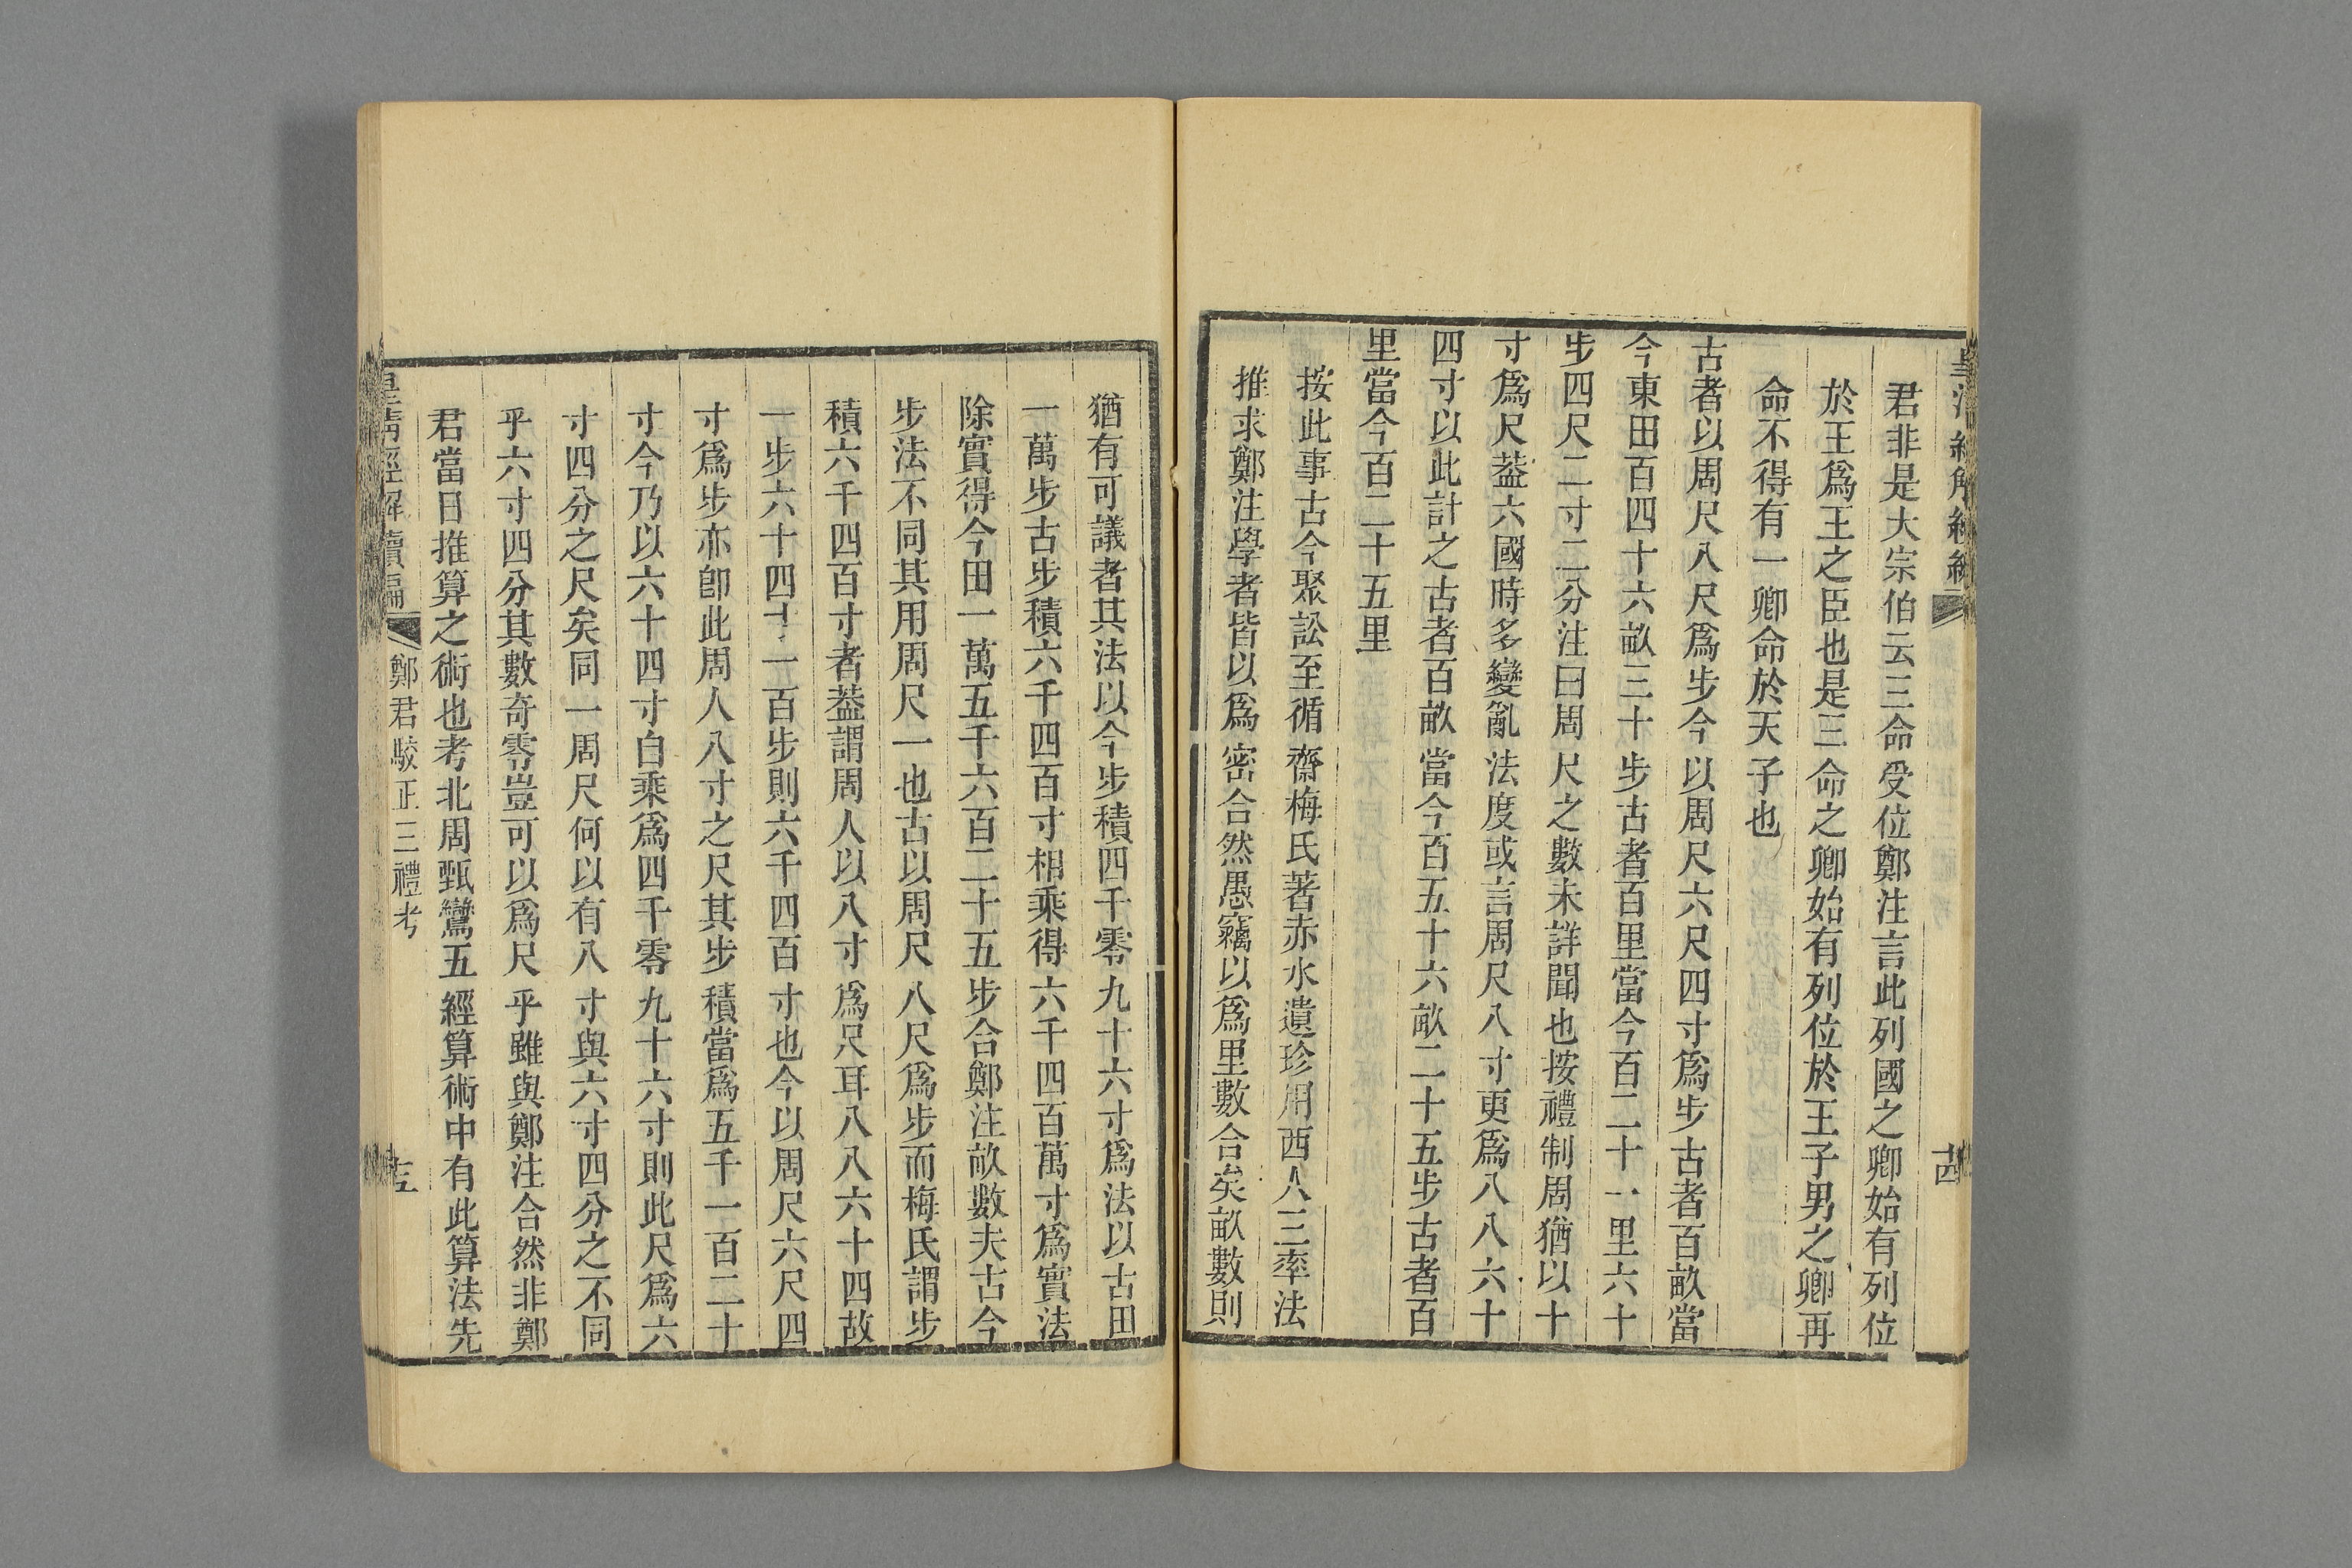 君非是大宗伯云三命受位鄭注言此列國之卿始有列位
於王爲王之臣也是三命之卿始有列位於王子男之卿再
命不得有一卿命於天子也
古者以周尺八尺爲步今以周尺六尺四寸爲步古者百畝當
今東田百四十六畝三十步古者百里當今百二十一里六十
步四尺二寸二分注曰周尺之數未詳聞也按禮制周猶以十
寸爲尺葢六國時多變亂法度或言周尺八寸更爲八八六十
四寸以此計之古者百畝當今百五十六畝二十五步古者百
里當今百二十五里
按此事古今聚訟至循齋梅氏著赤水遺珍用西人三率法
推求鄭注學者皆以爲密合然愚竊以爲里數合矣畝數則
十四
猶有可議者其法以今步積四千零九十六寸爲法以古田
一萬步古步積六千四百寸相乘得六千四百萬寸爲實法
除實得今田一萬五千六百二十五步合鄭注畝數夫古今
步法不同其用周尺一也古以周尺八尺爲步而梅氏謂步
積六千四百寸者葢謂周人以八寸爲尺耳八八六十四故
一步六十四寸一百步則六千四百寸也今以周尺六尺四
寸爲步亦卽此周人八寸之尺其步積當爲五千一百二十
寸今乃以六十四寸自乘爲四千零九十六寸則此尺爲六
寸四分之尺矣同一周尺何以有八寸與六寸四分之不同
乎六寸四分其數奇零豈可以爲尺乎雖與鄭注合然非鄭
君當日推算之術也考北周甄鸞五經算術中有此算法先
皇清經解續編 鄭君駁正三禮考 十五